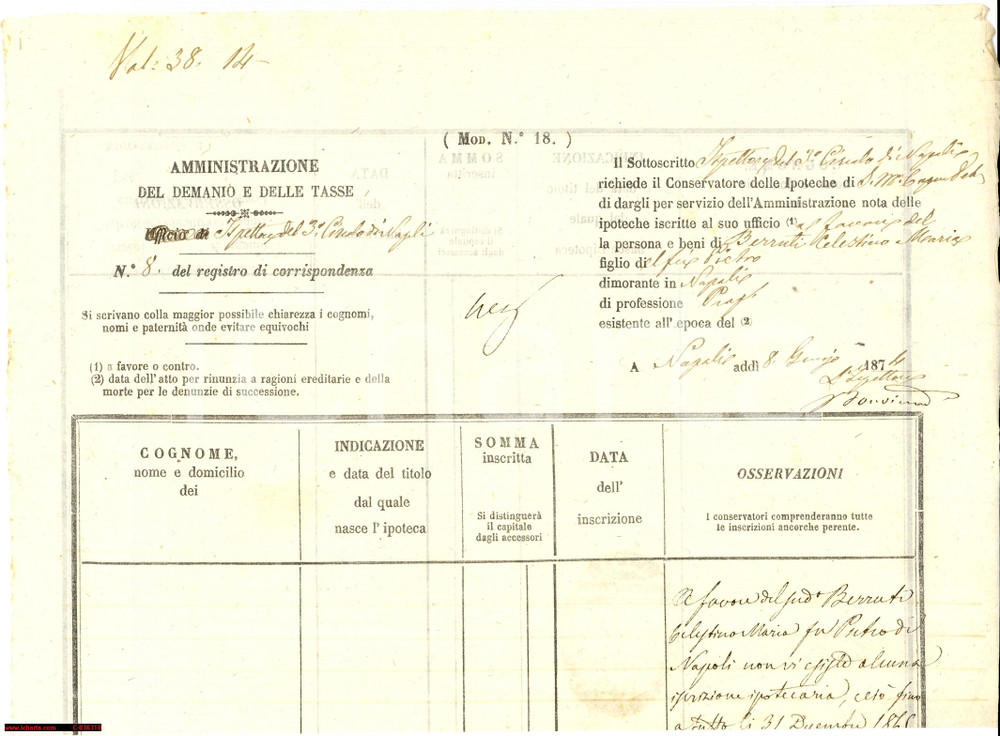 Vol: 38. 14 -
( MOD. N.° 18. )
AMMINISTRAZIONE
DEL DEMANIO E DELLE TASSE
Ufficio di Ispettore del 3° Circolo di Napoli
N.° 8. del registro di corrispondenza
Si scrivano colla maggior possibile chiarezza i cognomi,
nomi e paternità onde evitare equivochi
(1) a favore o contro.
(2) data dell'atto per rinunzia a ragioni ereditarie e della
morte per le denunzie di successione.
Il Sottoscritto Ispettore del 3° Circolo di Napoli
richiede il Conservatore delle Ipoteche di S. M.
di dargli per servizio dell'Amministrazione nota delle
ipoteche iscritte al suo ufficio (1) a favore del
la persona e beni di Berruti Celestino Maria
figlio di el fu Pietro
dimorante in Napoli
di professione
esistente all'epoca del (2)
A Napoli addì 8 1874
L'Ispettore
COGNOME,
nome e domicilio
dei
INDICAZIONE
e data del titolo
dal quale
nasce l'ipoteca
SOMMA
inscritta
Si distinguerà
il capitale
dagli accessori
DATA
dell'
inscrizione
OSSERVAZIONI
I conservatori comprenderanno tutte
le inscrizioni ancorche perente.
A favore del sud° Berruti
Celestino Maria fu Pietro di
Napoli non vi esiste alcuna
iscrizione ipotecaria, e ciò fino
a tutto li 31 Dicembre
www.icharta.com